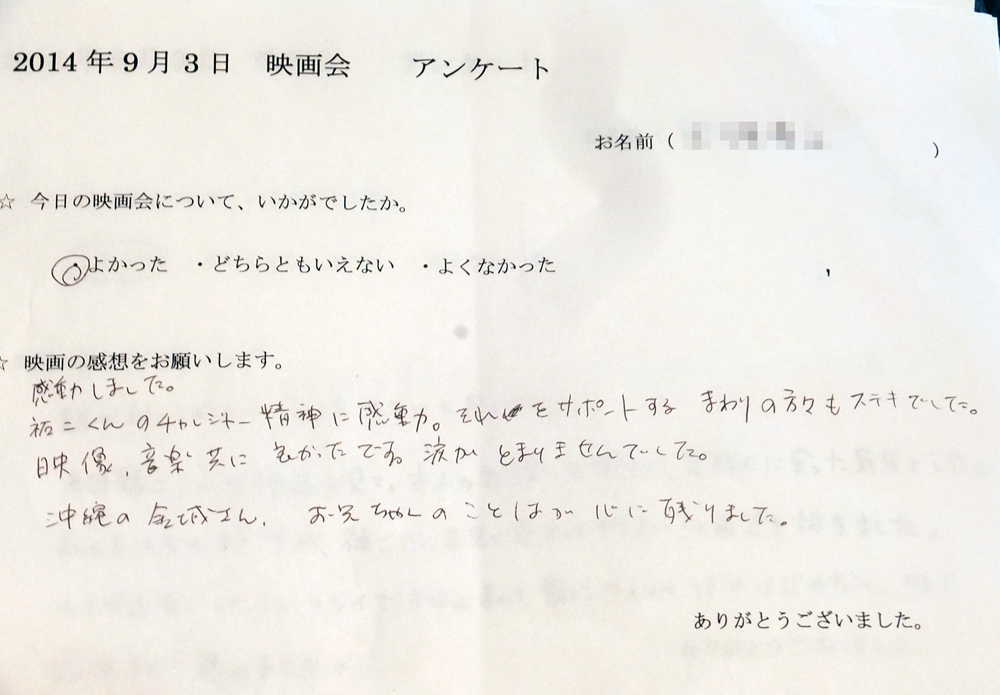 2014年9月3日 映画会 アンケート
お名前（ ）
☆ 今日の映画会について、いかがでしたか。
・よかった ・どちらともいえない ・よくなかった
☆ 映画の感想をお願いします。
感動しました。
祐二くんのチャレンジャー精神に感動。それをサポートするまわりの方々もステキでした。
映像 音楽共に 良かったです。涙がとまりませんでした。
沖縄の金城さん、お兄ちゃんのことばが心に残りました。
ありがとうございました。